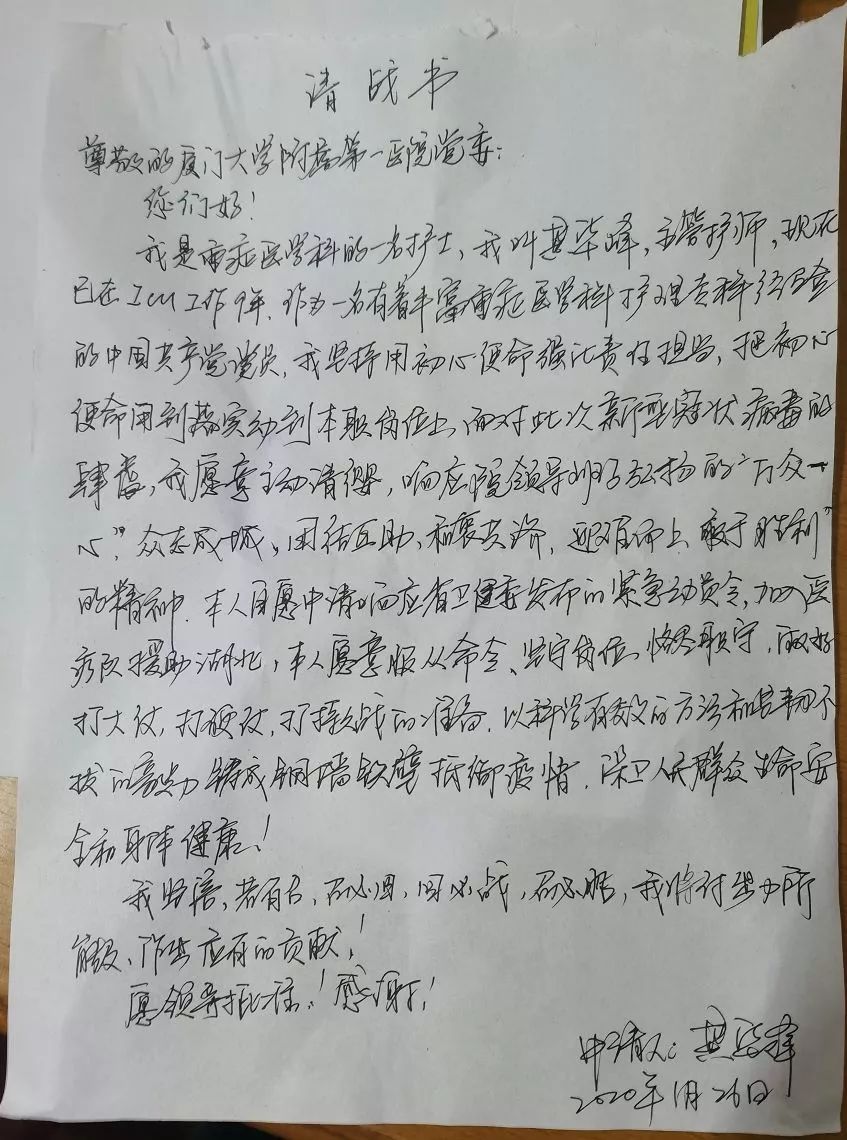 请战书
尊敬的厦门大学附属第一医院党委：
您们好！
我是重症医学科的一名护士，我叫黄毕峰，主管护师，现在
已在ICU工作9年．作为一名有着丰富重症医学科护理专科经验
的中国共产党党员，我坚持用初心使命强化责任担当，把初心
使命用到落实动到本职岗位上，面对此次新型冠状病毒的
肆虐，我愿意主动请缨，响应院领导班子弘扬的“万众一
心”，众志成城，团结互助，和衷共济，迎难而上、敢于胜利”
的精神．本人自愿申请响应省卫健委发布的紧急动员令，加入医
疗队援助湖北，本人愿意服从命令、坚守岗位，恪尽职守，做好
打大仗，打硬仗，打持久战的准备．以科学有效的方法和坚韧不
拔的毅力铸成铜墙铁壁抵御疫情．保卫人民群众生命安
全和身体健康！
我坚信，若有召，召必回，回必战，召必胜，我将付出力所
能及、作出应有的贡献！
愿领导批准！感谢！
申请人：黄毕峰
2020年1月26日